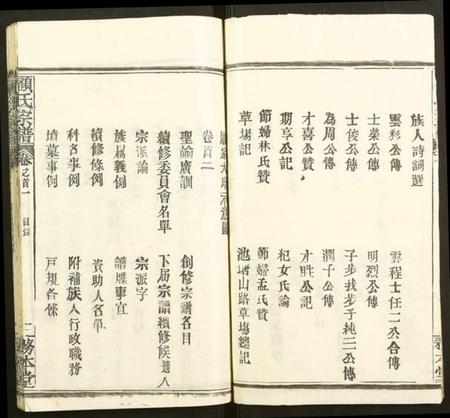 族人詩詞選
公傳 雲程士任二公合傳
公傳 明烈公傳
士俊公傳 子步我步子純二公傳
為周公傳 潤千公傳
才喜公贊 才甡公記
期亨公記 杞女氏論
節婦林氏贊 節婦孟氏贊
草場記 池塘山路草場總記
卷首二
聖諭廣訓 創修宗譜名目
續修委員會名單 下屆宗譜續修候選人
宗派論 宗派字
族屬義例 譜牒事宜
續修條例 資助人名單
科名事例 附補族人行政職務
墳墓事例 戶規各條
顧氏宗譜 卷之首一 目錄 二 務本堂